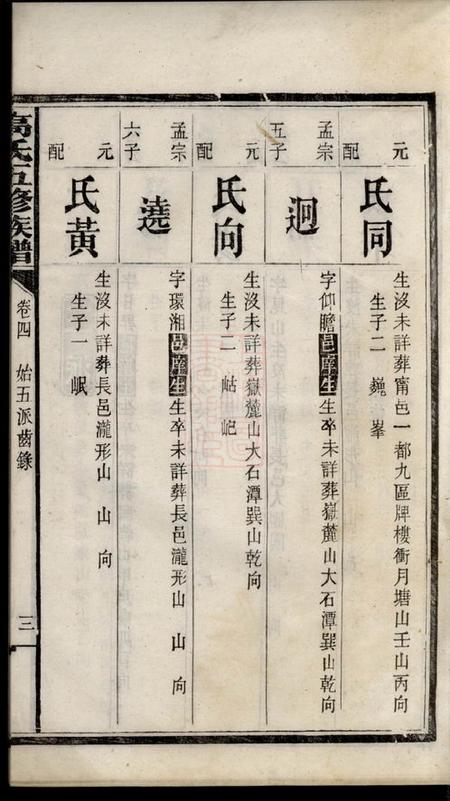 元配
氏同
生沒未詳葬甯邑一都九區牌樓衝月塘山壬山丙向
生子二 巍 峯
孟宗五子
迥
字仰瞻邑庠生生卒未詳葬嶽麓山大石潭巽山乾向
元配
氏向
生沒未詳葬嶽麓山大石潭巽山乾向
生子二 岵 屺
孟宗六子
澆
字環湘邑庠生生卒未詳葬長邑瀧形山 山 向
元配
氏黃
生沒未詳葬長邑瀧形山 山 向
生子一 岷
高氏五修族譜
卷四 始五派齒錄
三